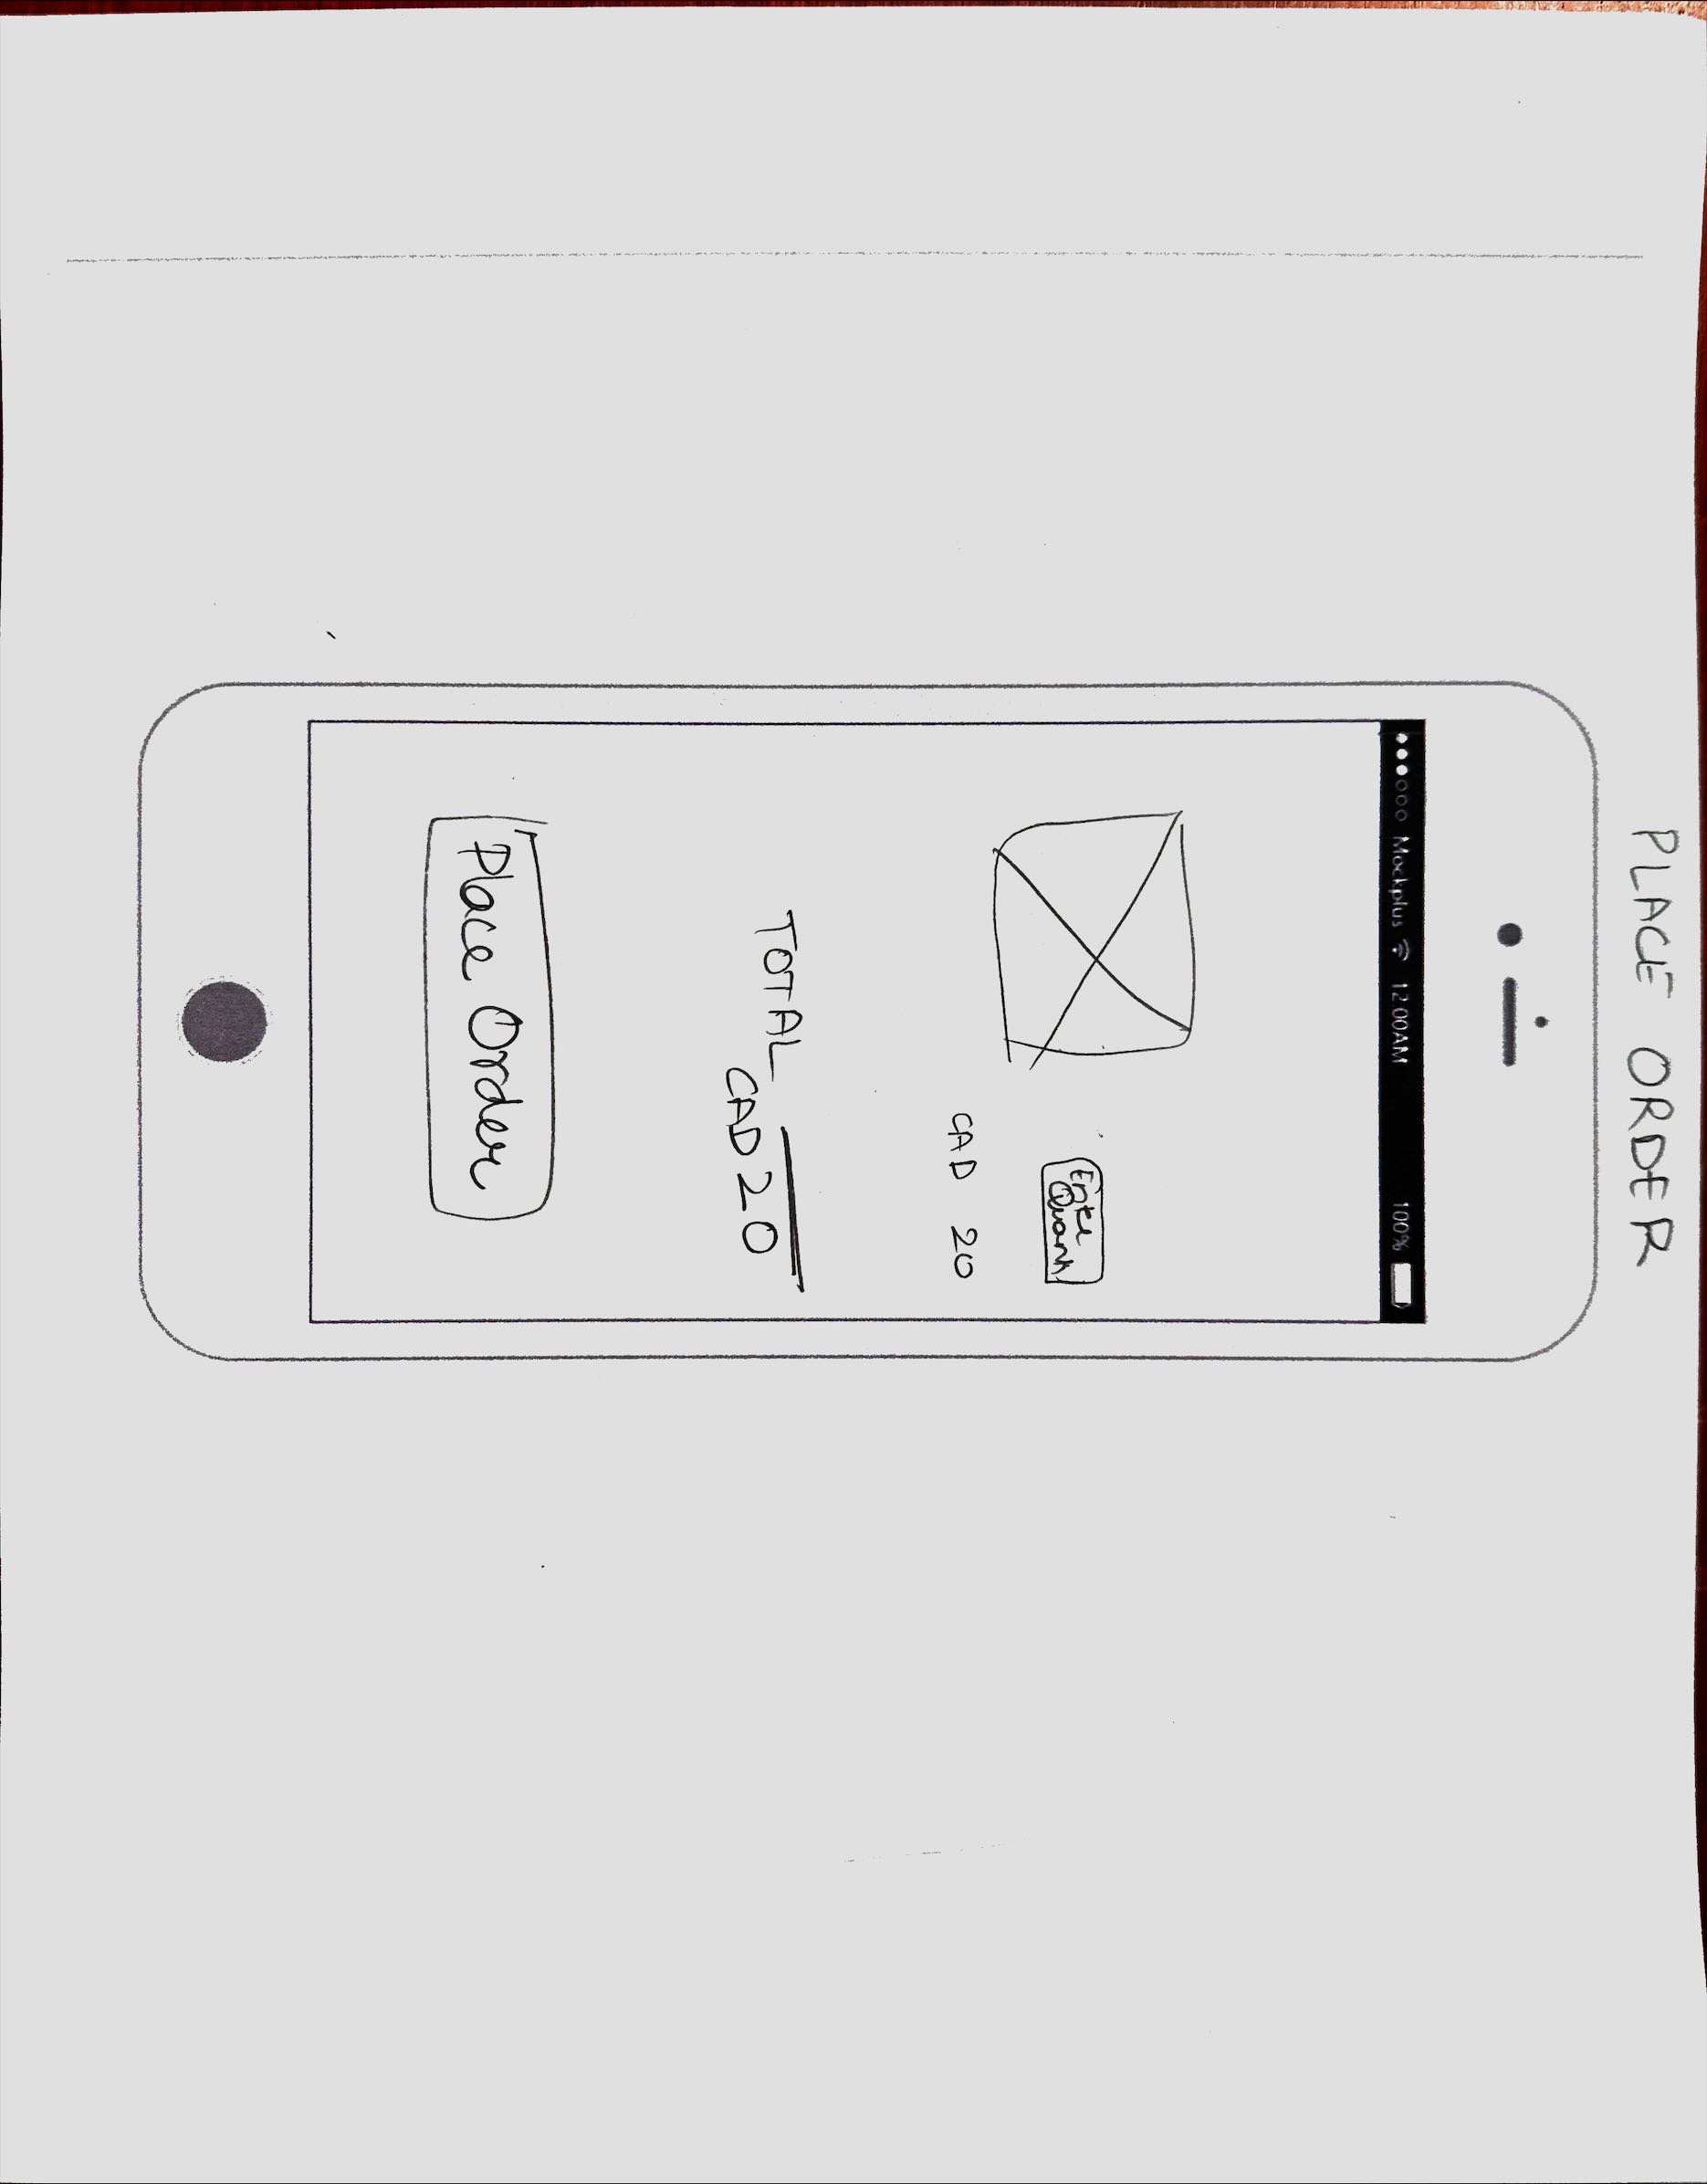 PLACE ORDER
Mockplus 12:00AM 100%
Enter
Quant
CAD 20
TOTAL
CAD 20
Place Order